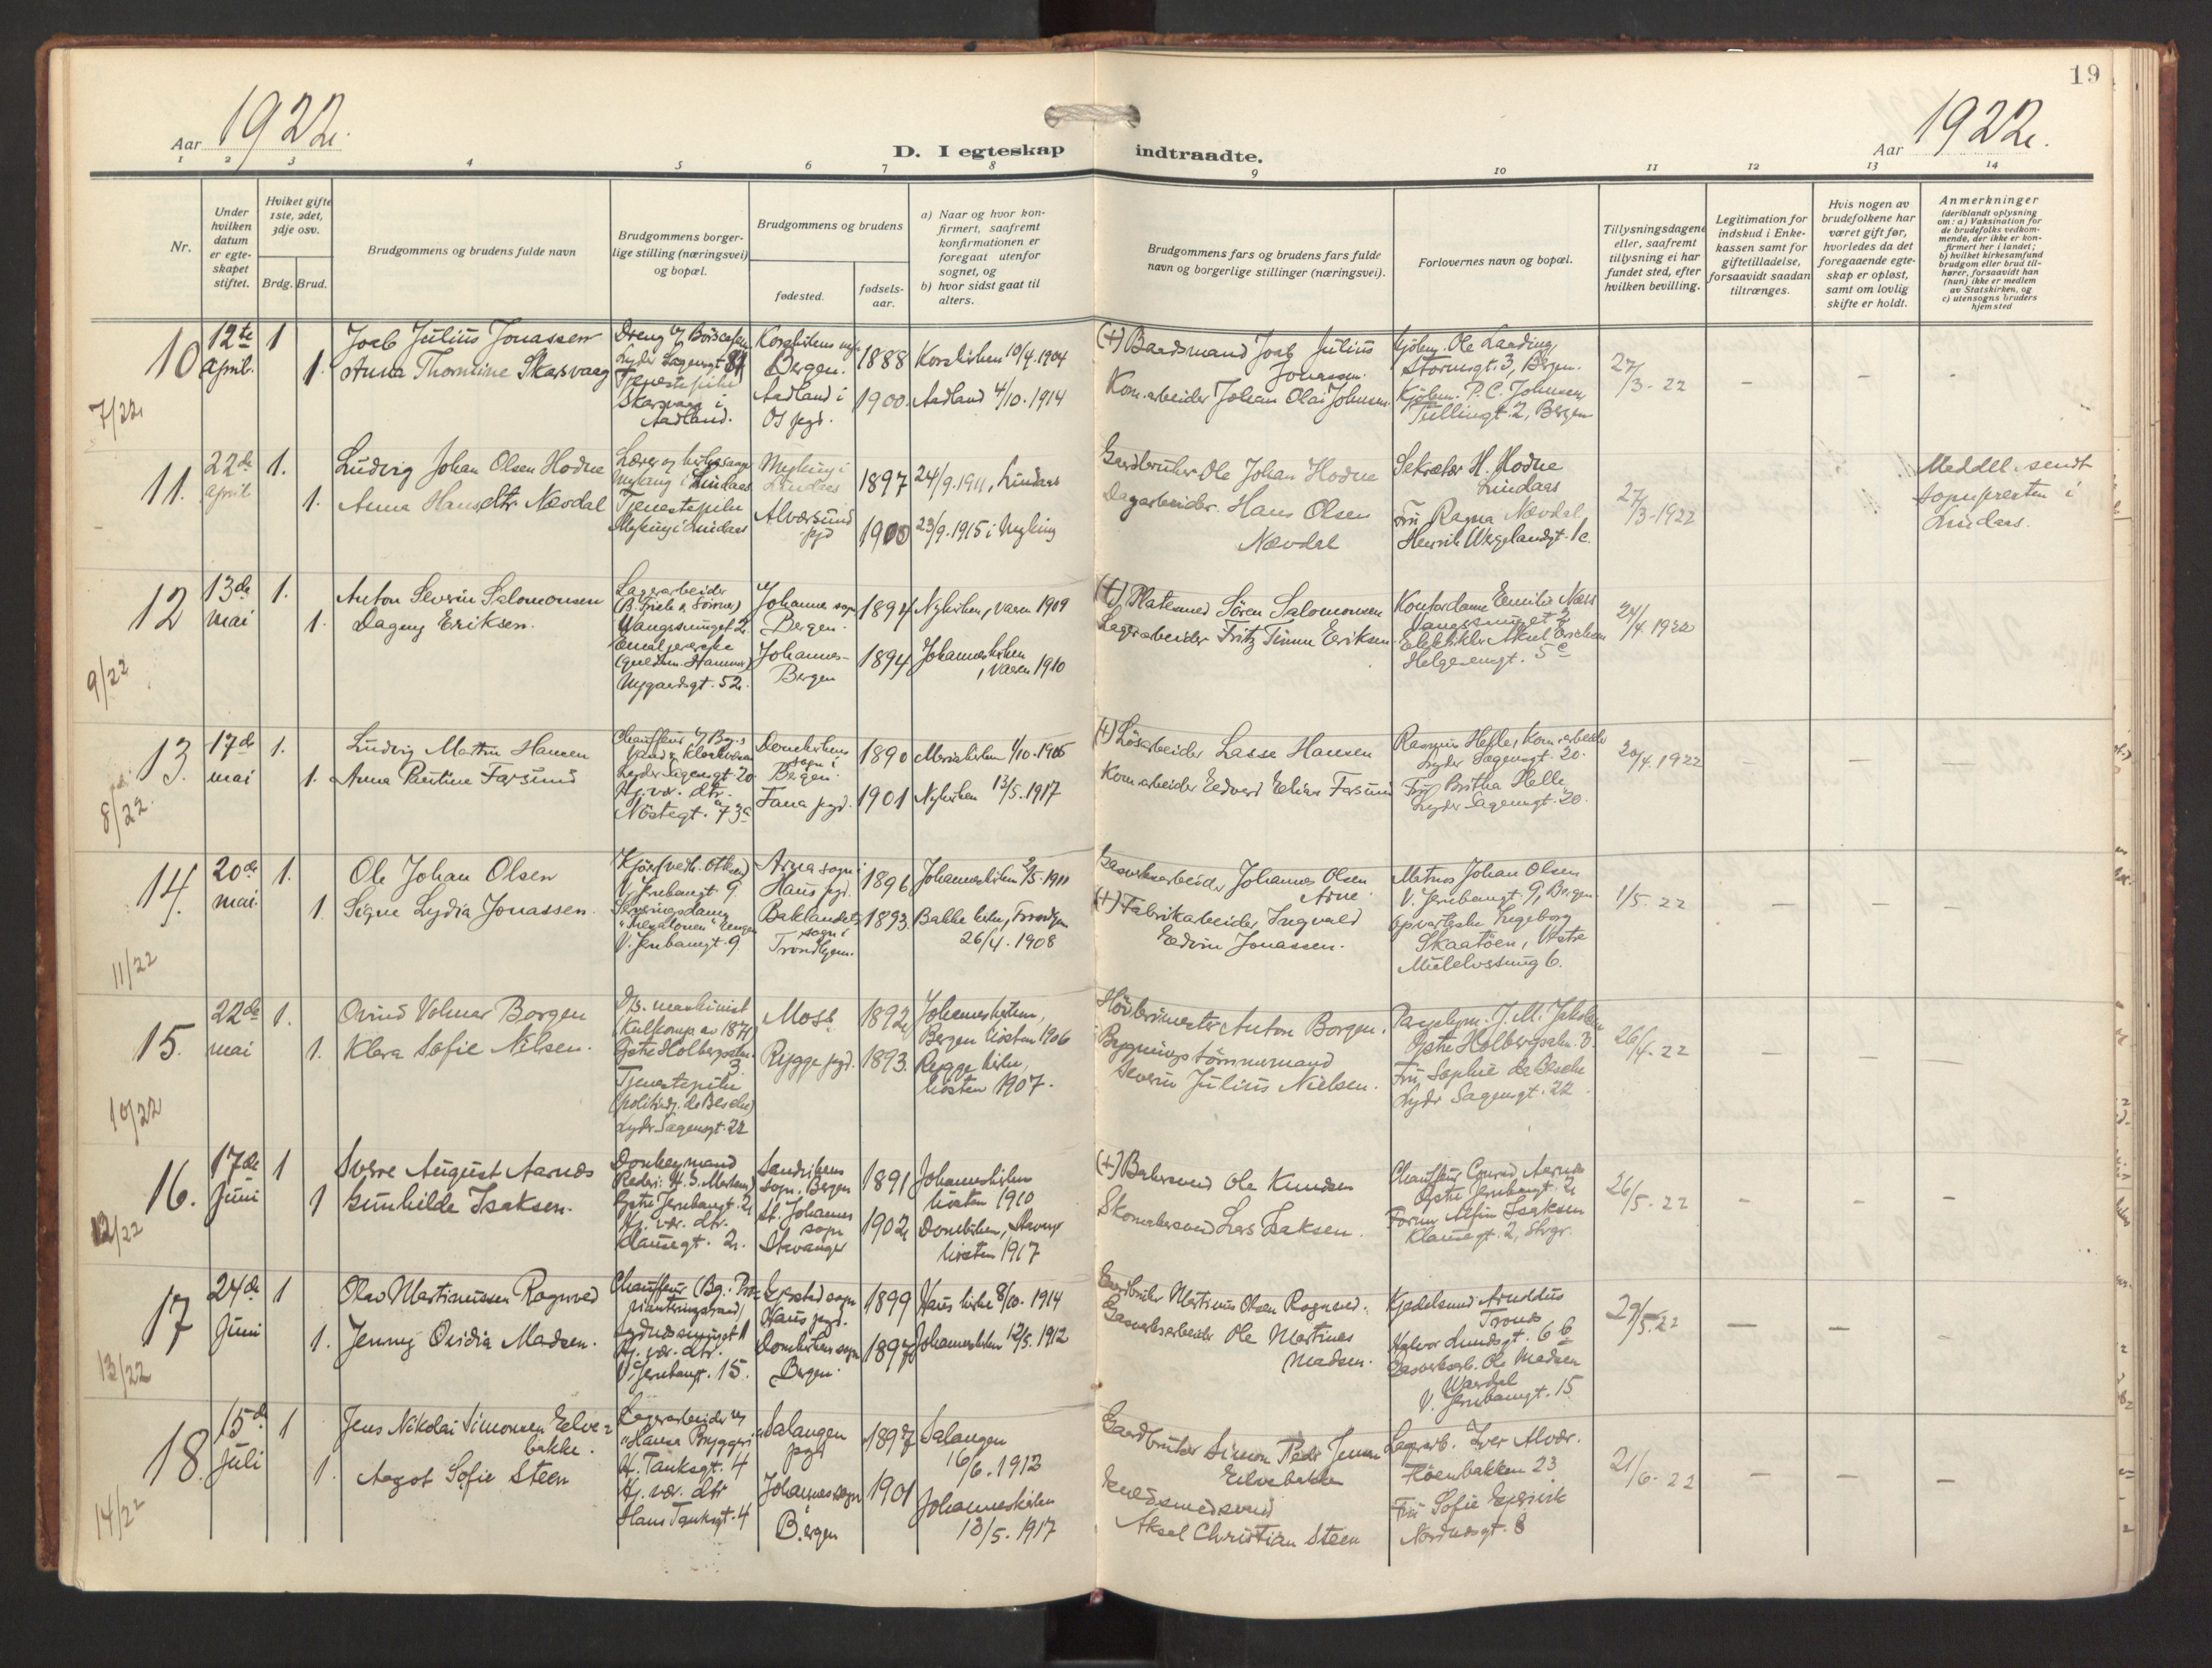 19
Aar 1922.
D. I egteskap indtraadte.
Aar 1922.
1 2 3 4 5 6 7 8 9 10 11 12 13 14
Nr.
Under hvilken datum er egte-skapet stiftet.
Hviket gifte 1ste, 2det, 3dje osv.
Brdg. Brud.
Brudgommens og brudens fulde navn
Brudgommens borger-
lige stilling (næringsvei)
og bopæl.
Brudgommens og brudens
fødested.
fødsels-
aar.
a) Naar og hvor kon-
firmert, saafremt
konfirmationen er
foregaat utenfor
sognet, og
b) hvor sidst gaat til
alters.
Brudgommens fars og brudens fars fulde
navn og borgerlige stillinger (næringsvei).
Forlovernes navn og bopæl.
Tillysningsdagene
eller, saafremt
tillysning ei har
fundet sted, efter
hvilken bevilling.
Legitimation for
indskud i Enke-
kassen samt for
giftetilladelse,
forsaavidt saadan
tiltrænges.
Hvis nogen av
brudefolkene har
været gift før,
hvorledes da det
foregaaende egte-
skap er opløst,
samt om lovlig
skifte er holdt.
Anmerkninger
(deriblandt oplysning
om: a) Vaksination for
de brudefolks vedkom-
mende, der ikke er kon-
firmert her i landet;
b) hvilket kirkesamfund
brudgom eller brud til-
hører, forsaavidt han
(hun) ikke er medlem
av Statskirken, og
c) utensogns bruders
hjemsted
10
7/22
12te
april.
1
1.
Joab Julius Jonassen
Anna Thomine Skarsvaag
Lyder Sagensgt.
Tjenestepike
Skarsvaag i
Aadland.
Bergen.
Aadland i
Os pgd.
1888
1900.
Korskirken 10/4.1904
Aadland 4/10.1914
(+) Baadsmand Joab Julius
Jonassen.
Kom.arbeider Johan Olai Johnsen.
Kjøbm. Ole Laading
Stormsgt. 3, Bergen.
Kjøbm. P. C. Johnsen
Tullingt. 2, Bergen
27/3-22
11.
22de
april
1.
1.
Ludvig Johan Olsen Hodne
Anna Hansdtr. Nævdal
Lærer og kirkesanger
Myking i Lindaas
Tjenestepike
Myking i Lindaas
Myking i
Lindaas
Alversund
pgd
1897
1900
24/9.1911, Lindaas
23/9.1915 i Myking
Gardbruker Ole Johan Hodne
Dagarbeider Hans Olsen
Nævdal
Sekretær H. Hodne
Lindaas
Fru Ragna Nævdal
Henrik Wergelandsgt. 1c.
27/3-1922
Meddel. sendt
sognepresten i
Lindaas.
12
9/22
13de
mai
1.
1.
Anton Severin Salomonsen
Dagny Eriksen.
Lagerarbeider
Nygaardsgt. 52.
Johannes sogn
Bergen.
Johannes-
Bergen
1894
1894
Nykirken, vaaren 1909
Johanneskirken
, vaaren 1910
(+) Platesmed Sören Salomonsen
Lagerarbeider Fritz Timm Eriksen.
Kontordame Emilie Næss
Helgesensgt. 5c
24/4.1922
13.
8/22
17de
mai
1.
1.
Ludvig Martin Hansen
Anna Pauline Farsund
Lyder Sagensgt 20
Hj.vær. dtr.
Nöstegt. 73a
Domkirkens
sogn i
Bergen.
Fana pgd.
1890
1901
Mariakirken 1/10.1905
Nykirken 13/5.1917
(+) Lösarbeider Lasse Hansen
Kom.arbeider Edvard Farsund
Rasmus Helle, Kom.arbeider
Lyder Sagensgt. 20.
Fru Britha Helle
Lyder Sagensgt. 20.
20/4.1922
14.
11/22
20de
mai
1.
1
Ole Johan Olsen
Signe Lydia Jonassen.
V. Jernbanegt 9.
Serveringsdame
V. Jernbanegt. 9.
Arna sogn i
Haus pgd.
Baklandets
sogn i
Trondhjem.
1896
1893.
Johanneskirken 2/5.1911
Bakke kirke, Trondhjem
26/4.1908
Gasverksarbeider Johannes Olsen
Arne
(+) Fabrikarbeider Ingvald
Edvin Jonassen.
Matros Johan Olsen
V. Jernbanegt 9, Bergen
Opvarterske Ingeborg
Skaatöen, Vestre
Muralvssmug 6.
1/5-22
15.
10/22
22de
mai
1.
1.
Övind Volmar Borgen
Klara Sofie Nilsen.
D/S. maskinist
(Kulkomp. av 1874)
Öystre Holbergsalm.
3.
Tjenestepike
(politiadj. de Besche)
Lyder Sagensgt. 22
Moss
Rygge pgd.
1892
1893.
Johanneskirken,
Bergen hösten 1906
Rygge kirke,
hösten 1907.
Anton Borgen.
Bygningstömmermand
Severin Julius Nielsen.
Öystre Holbergsalm. 3.
Fru Sophie de Besche
Lyder Sagensgt. 22
26/4-22
16.
12/22
17de
juni
1
1
Sverre August Aarnes
Gunhilde Isaksen.
Donkeymand
Öystre Jernbanegt. 2
Hj. vær. dtr.
Klausegt. 2.
Sandvikens
sogn, Bergen
St. Johannes
sogn
Stavanger
1891
1902
Johanneskirken
hösten 1910
Domkirken, Stavanger
hösten 1917
(+) Bakersvend Ole Knudsen
Skomakersvend Lars Isaksen.
Chauffeur Conrad Aarnes
Öystre Jernbanegt. 2
Isaksen
Klausegt. 2, Stvgr.
26/5-22
17
13/22
24de
juni
1
1.
Olav Martinussen Rognved
Jenny Ovidia Madsen.
Chauffeur
Hj. vær. dtr.
V. Jernbanegt. 15.
Gjerstad sogn
Haus pgd.
Domkirkens sogn
Bergen.
1899
1897
Haus kirke 8/10.1914
Johanneskirken 12/5.1912
Gardbruker Martinus Olsen Rognved.
Gasverksarbeider Ole Martines
Madsen.
Kjedelsmed
Trones
Halvor Lundsgt. 6b
Gasverksarb. Ole Madsen
Wardal
V. Jernbanegt. 15
29/5.22
18.
14/22
15de
juli
1
1.
Jens Nikolai Simonsen Eelve-
bakke.
Aagot Sofie Steen
Lagerarbeider v/
"Hansa Bryggeri
H. Tanksgt. 4
Hj. vær. dtr
Hans Tanksgt. 4
Salangen
pgd
Johannes sogn
Bergen
1897
1901
Salangen
16/6.1912
Johanneskirken
13/5.1917
Gardbruker Simon Peder Jensen
Eilvebakken
Aksel Christian Steen
Lagerarb. Iver Alvær.
Flöenbakken 23
Fru Sofie
Nordnesgt. 8
21/6-22